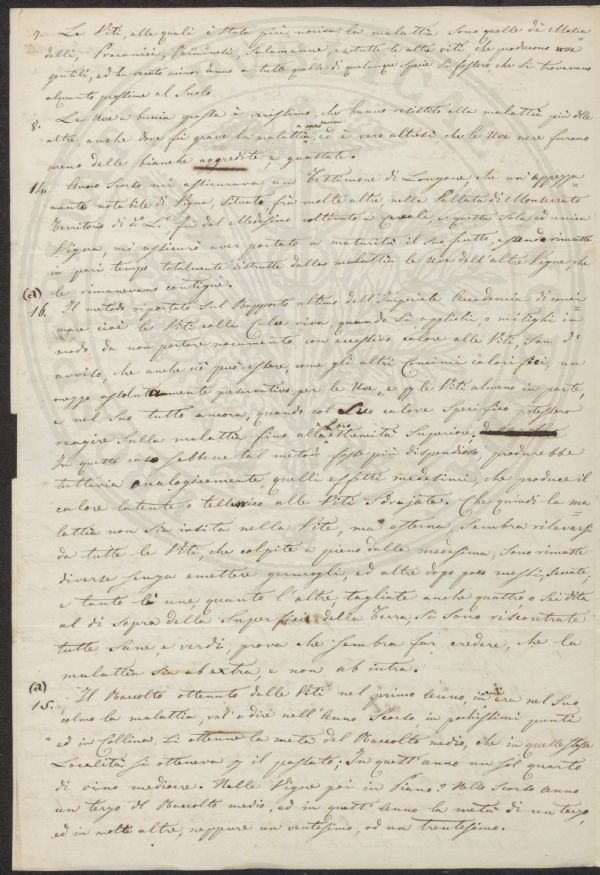 7. Le Viti, alle quali è stata più nociva la malattia sono quelle dè Mosca
delli, Procanici, Salamanne, e tutte le alte viti che producono uve
gentili, ed ha recato minor danno a tutte quelle di qualunque specie si fossero che si trovavano
alquanto prossime al Suolo
8. Le Uve a buccia grossa è verissimo, che hanno resistito alla malattia più delle
altre, anche dove fù grave la malattia, ed è vero altresì, che le Uve nere furono
meno delle bianche aggredite, e guastate.
14. Anno Scorso mi assicurava un Testimone di Longone, che un' appezza=
mento notabile di Vigne, situato frà molte altre nella Vallata di Monserrato
Territorio di d.o L.o fù dal Medesimo coltivato a e questa sola ed unica
Vigna, mi assicurò aver portato a maturità il suo frutto, essendo rimaste
in pari tempo totalmente distrutte dalla malattia le Uve dell'altre Vigne, che
le rimanevano contigue.
(a)
16. Il metodo riportato sul Rapporto ultimo dell'Imperiale Accademia di conci=
mare cioè le Viti colla Calce viva, quando si applichi, o mitighi in
modo da non portare nocumento con eccessivo calore alle Viti, Son d'
avviso, che anche ciò può essere, come gli altri Concimi calorifici, un
mezzo assolutamente preservativo per le Uve, e p le Viti almeno in parte,
e nel Suo tutto ancora, quando col Suo calore specifico potessero
reagire sulla malattia fino alla Loro estremità Superiore.
In questo caso sebbene tal metodo fosse più dispendioso, produrebbe
tuttavia analogicamente quelli effetti medesimi, che produce il
calore latente o tellurico alle Viti Sdrajate. Che quindi la ma
lattia non sia insita nella Vite, ma esterna, sembra rilevarsi
da tutte le Viti, che colpite a pieno dalla medesima, sono rimaste
diverse senza emettere germogli, ed altre dopo poco messi, seccate;
e tanto le une, quanto l'altre tagliate anche quattro, o sei dita
al di sopra della Superficie della Terra, si sono riscontrate
tutte sane e verdi, prova che sembra far credere, che la
malattia sia ab extra, e non ab intra.
(a)
15. Il Raccolto ottenuto dalle Viti nel primo Anno, in cui era nel Suo
colmo la malattia, val'a dire nell'Anno Scorso, in pochissimi punti
ed in Collina, si ottenne la metà del Raccolto medio, che in quelle stesse
Località si otteneva p il passato; In quest'anno un sol quarto
di vino mediocre. Nelle Vigne poi in Piano? Nello Scorso Anno
un terzo del Raccolto medio, ed in quest'Anno la metà di un terzo,
ed in molte altre, neppure un ventesimo, od un trentesimo.